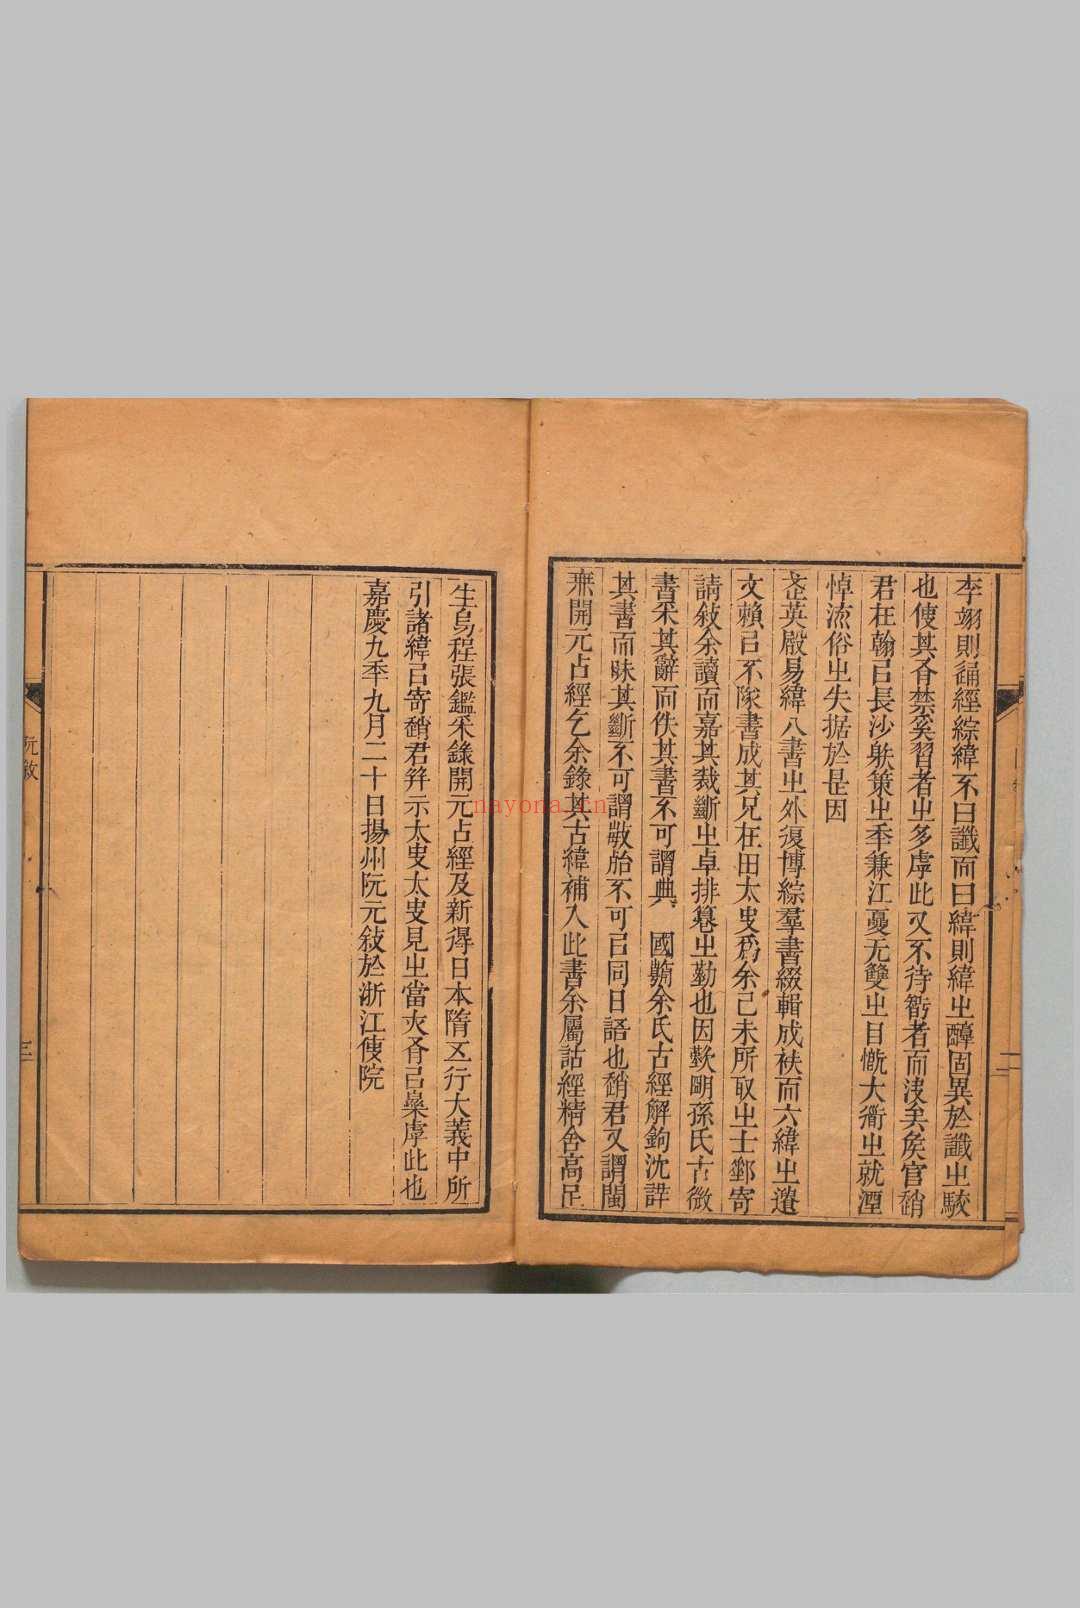 李翊則通經綜緯不曰讖而曰緯則緯㞢醇固異於讖㞢駮
也使其有禁奚習者㞢多虖此又不待辭者而決矣矦官趙
君在翰㠯長沙躲策㞢秊兼江夏无雙㞢目慨大衢㞢就湮
悼流俗㞢失据於是因
武英殿易緯八書㞢外復博綜羣書綴輯成袟而六緯㞢遺
文賴㠯不隊書成其兄在田太史爲余己未所取㞢士郵寄
請敍余讀而嘉其裁斷㞢卓排簒㞢勤也因歎朙孫氏古微
書采其辭而佚其書不可謂典 國朝余氏古經解鉤沈詳
其書而昧其斷不可謂敚胎不可㠯同日語也趙君又謂閩
無開元占經乞余錄其古緯補入此書余屬詁經精舍高足
生烏程張鑑采錄開元占經及新得日本隋五行大義中所
引諸緯㠯寄趙君幷示太史太史見㞢當亦有㠯樂虖此也
嘉慶九秊九月二十日揚州阮元敍於浙江使院
阮敍
三
nayona.cn